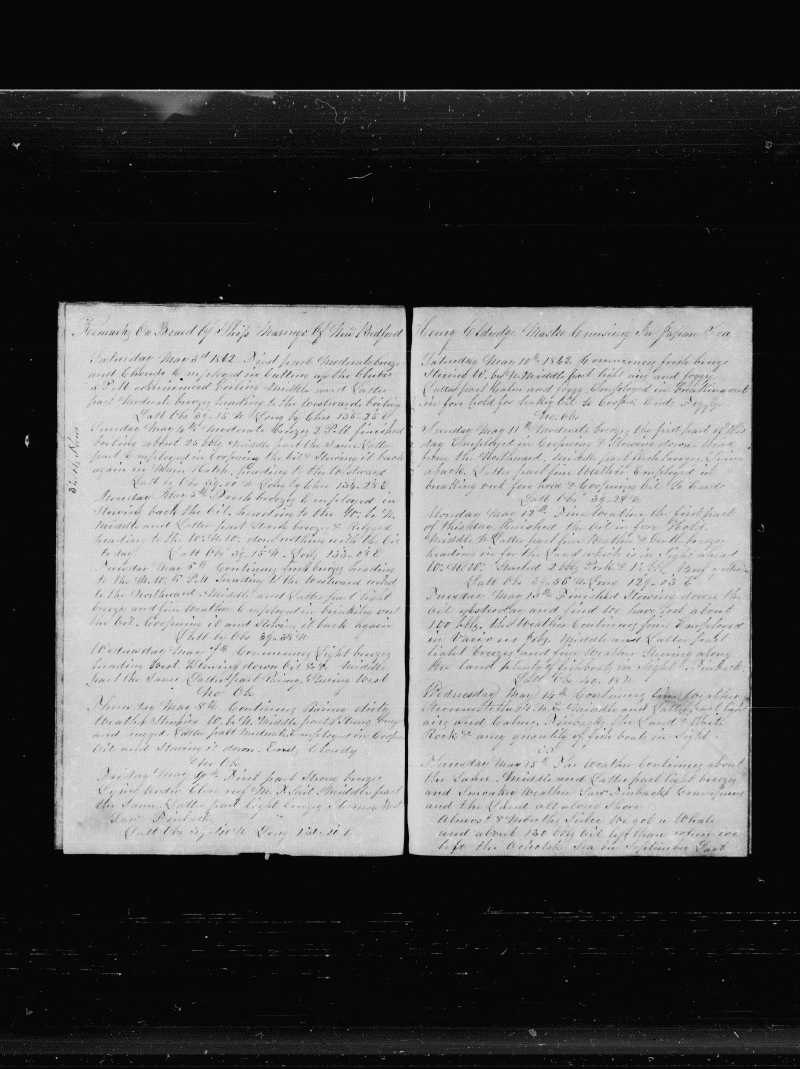 Remarks On Board Of Ship Marengo Of New Bedford
Saturday May 3d 1862 First part Moderate breeze
and Cloudy Employed in Cutting up the
5 P.M commenced boiling Middle and Latter
part Moderate breeze heading to the Westward boiling
Latt Obs 39-15 N Long by Chro 135-25 E
Sunday May 4th Moderate breeze 2 P.M finished
boiling about 25 bbls Middle part the Same Latter
part Employed in Coopering the Oil & Stowing it back
again in Main Hatch heading to the Westward
Latt by Obs 39-00 N Long by Chro 134-23 E
Monday May 5th Fresh breeze Employed in
Stowing back the Oil heading to the W. by N.
Middle and Latter part Strong breeze & Rugged
heading to the W.N.W. done nothing with the Oil
to day Latt Obs 39-15 N. Long 133-05 E
Tuesday May 6th Continues fresh breeze heading
to the N.W. 5 P.M heading to the westward wind
to the Northward Middle and Latter part light
breeze and fine Weather Employed in breaking out
the Oil Coopering it and Stowing it back again
Latt by Obs 39-38 N
Wednesday May 7th Commences Light breeze
heading West Stowing down Oil &c. Middle
part the Same Latter part Rainy Steering West
No Obs
Thursday May 8th Continues Rainy dirty
Weather Steering W. by N. Middle part Strong breeze
and rugged Latter part Moderate employed in Coopering
Oil and Stowing it down. Ends Cloudy
No Obs
Friday May 9th First part Strong breeze
Lying Under Close reef M.T. Sail Middle part
the Same Latter part Light breeze Steering West
Saw Finback
Latt Obs 39-40 N Long 131-10 E
Henry Eldredge Master Cruising In Japan Sea
Saturday May 10th 1862. Commences fresh breeze
Steering W. by N. Middle part light air and foggy
Latter part Calm and foggy Employed in breaking out
in fore hold for leaky Oil to Cooper. Ends Foggy
No Obs
Sunday May 11th Moderate breeze the first part of this
day Employed in Coopering & Stowing down Wind
from the Northward. Middle part fresh breeze Lying
aback, Latter part fine Weather Employed in
breaking out fore hold & Coopering Oil So Ends
Latt Obs 39-28 N
Monday May 12th Fine Weather the first part
of this day finished the Oil in fore Hold.
Middle & Latter part fine Weather & South breeze
heading in for the Land which is in Sight ahead
W.N.W. Started 2 bbls Pork & 1½ bbls Beef
Latt Obs 39-56 N Long 129-03 E
Tuesday May 13th Finished Stowing down the
Oil yesterday and find we have lost about
100 bbls. this Weather Continues fine Employed
in Various Jobs Middle and Latter part
light breezes and fine Weather Steering along
the land plenty of fishboats in Sight Finback
Latt Obs 40-18 N
Wednesday May 14th Continues fine Weather
Steering Middle and Latter part light
airs and Calms. Finbacks, the Land & White
Rock & any quantity of fish boats in Sight.
Thursday May 15th The Weather Continues about
the Same Middle and Latter part light breezes
and Smoky Weather Saw Finbacks Grampuses
and the Land all along Shore
Almost 8 Months Since We got a Whale
and about 130 bbls Oil less than when we
left the Ochotsk Sea in September Last